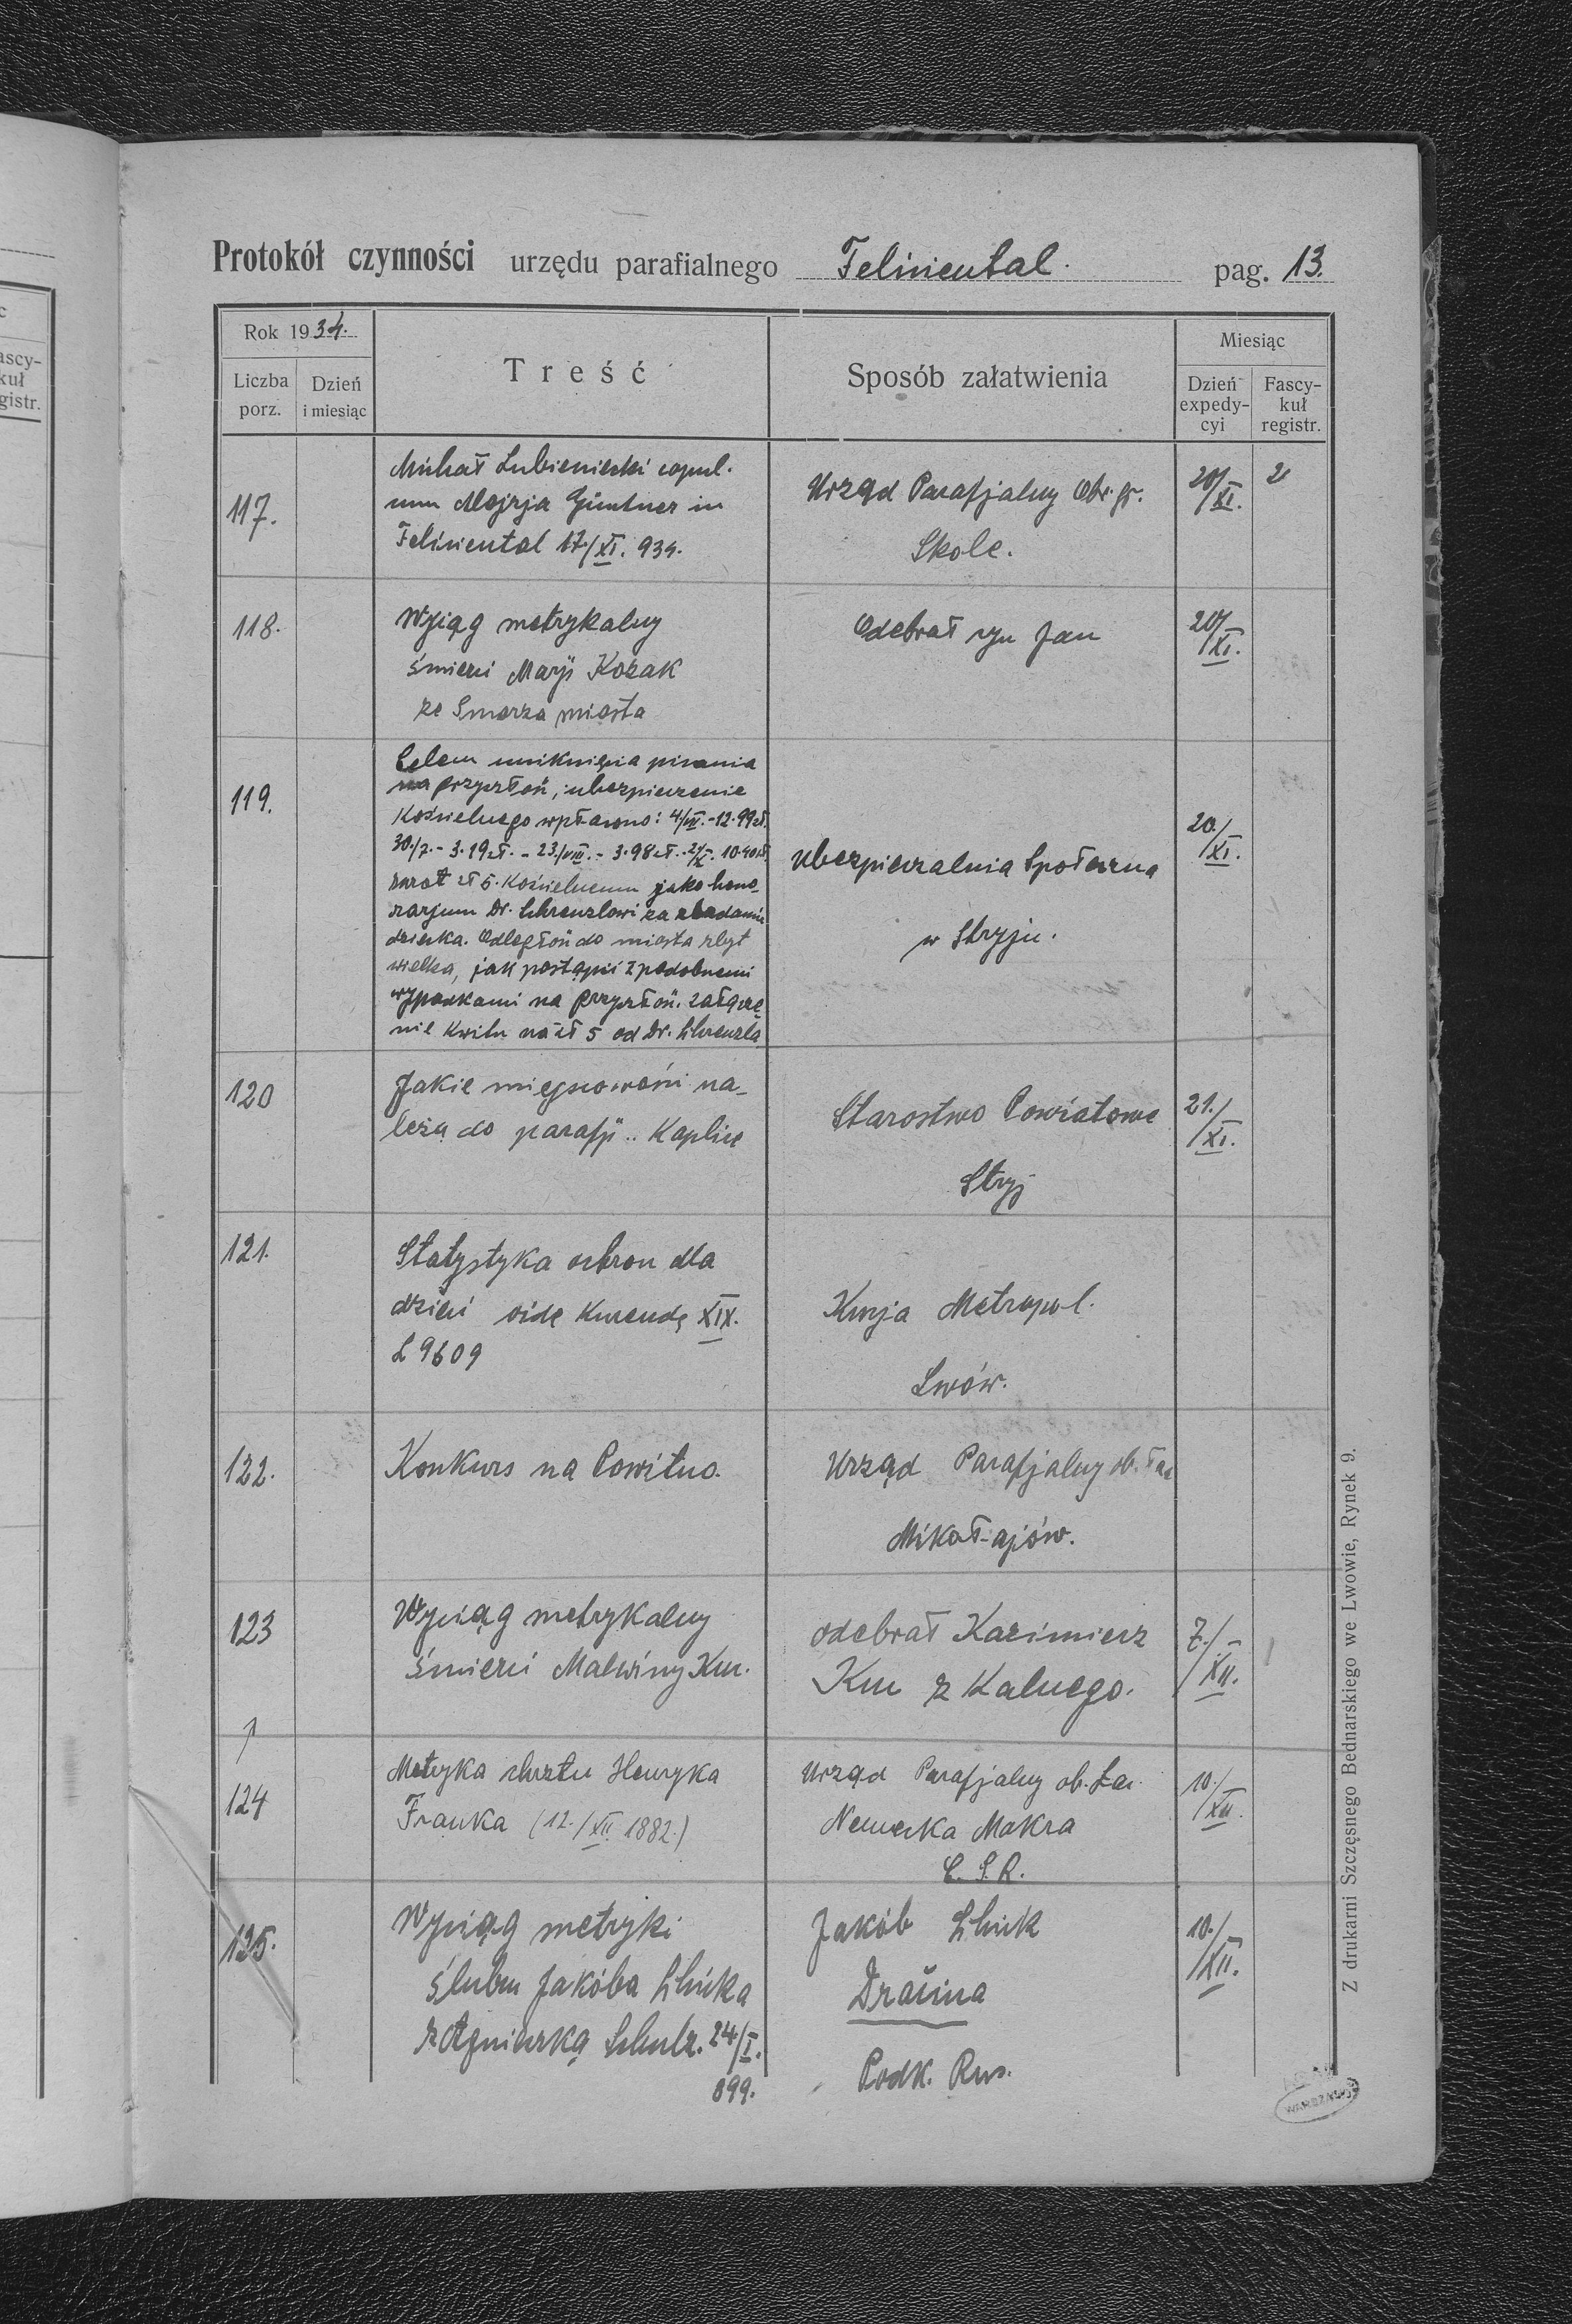 Protokół czynności urzędu parafialnego Feliziental. pag. 13.
Rok 1934.
Liczba porz.
Dzień i miesiąc
Treść
Sposób załatwienia
Miesiąc
Dzień expedy-cyi
Fascy-kuł registr.
117.
Michał Lubieniecki copul.
cum Alojzja Güntner in
Feliziental 17/XI. 934.
Urząd Parafjalny Obr. gr.
Skole.
20/XI.
118.
Wyciąg metrykalny
śmierci Marji Kozak
ze Smorza miasta
Odebrał syn Jan
20/XI.
119.
Celem uniknięcia pisania
na przyszłoń, ubezpieczenie
Kościelnego wpłacono: 4/VII. - 12.99 zł.
30./7. - 3.19 zł. - 23./VIII. - 3.98 zł. 10.40 zł.
zwrot zł 5. Kościelnemu jako hono-
rarjum Dr. za zbadanie
dziecka. Odległoń do miasta zbyt
wielka, jak postąpić z podobnemi
wypadkami na przyszłoń. załącze
nie kwitu na zł 5 od Dr.
Ubezpieczalnia Społeczna
w Stryju.
20./XI.
120
Jakie miejscowości na-
leżą do parafji .. Kaplice
Starostwo Powiatowe
Stryj
21./XI.
121.
Statystyka ochron dla
dzieci vide Kurendę XIX.
L 9609
Kurja Metropol.
Lwów.
122.
Konkurs na Powitno.
Urząd Parafjalny ob. łac
Mikołajów.
123
Wyciąg metrykalny
śmierci Malwiny Kun.
odebrał Kazimierz
Kun z Kalnego.
7./XII.
124
Metryka chrztu Henryka
Franka (12./XII. 1882.)
Urząd Parafjalny ob. Łac.
Nemecka Mokra
C. S. R.
10./XII.
125.
Wyciąg metryki
ślubu Jakóba
z Agnieszką Schulz. 24/I.
899.
Jakób
Dračina
Podk. Rus.
10./XII.
Z drukarni Szczęsnego Bednarskiego we Lwowie, Rynek 9.